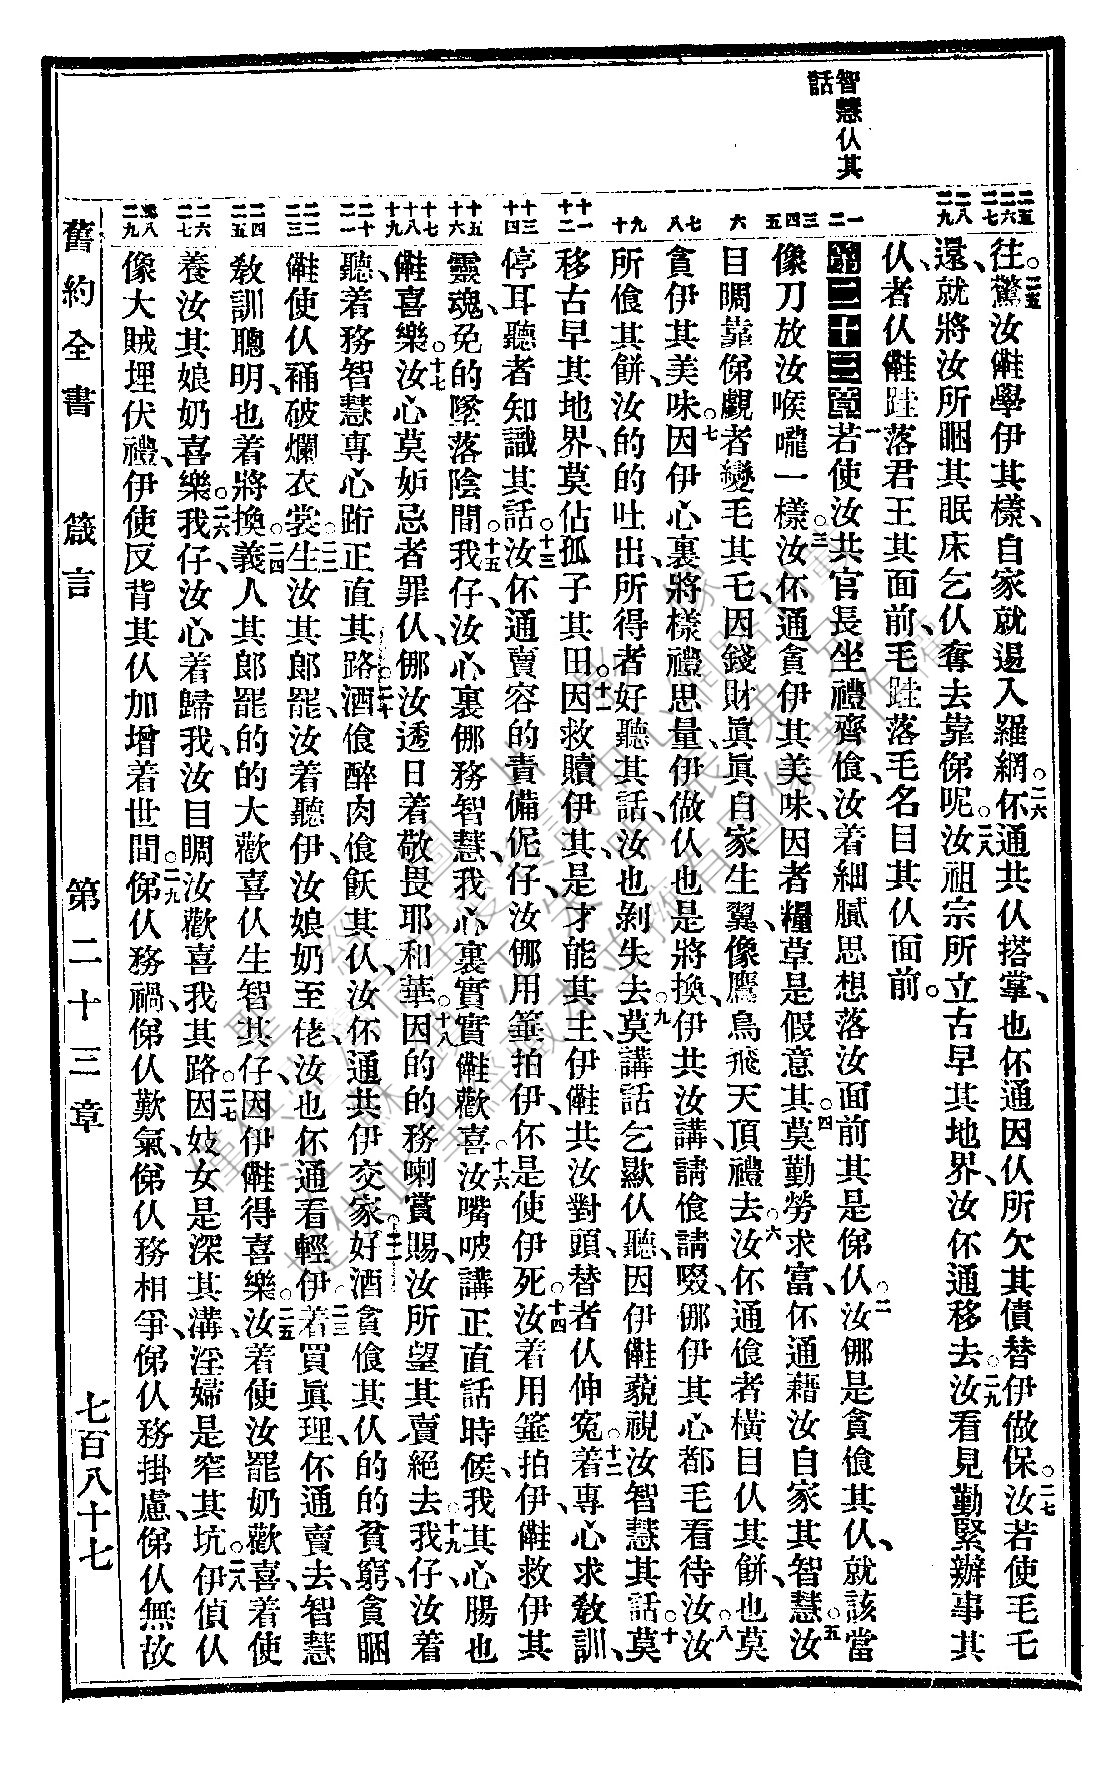 智慧仈其
話
往、驚汝㒰學伊其樣、自家就遏入羅網。二六伓通共仈搭掌、也伓通因仈所欠其債替伊做保。二七汝若使毛乇
還、就將汝所睏其眠床乞仈奪去靠俤呢。二八汝祖宗所立古早其地界、汝伓通移去。二九汝看見勤緊辦事其
仈、者仈㒰跬落君王其面前、毛跬落毛名目其仈面前。
第二十三章 一若使汝共官長坐禮齊飡、汝着細膩思想落汝面前其是俤仈。二汝㑚是貪飡其仈、就該當
像刀放汝喉嚨一樣。三汝伓通貪伊其美味、因者糧草是假意其。四莫勤勞求富、伓通藉汝自家其智慧。五汝
目睭靠俤覷者變毛其乇、因錢財眞眞自家生翼、像鷹鳥飛天頂禮去。六汝伓通飡者橫目仈其餅、也莫
貪伊其美味。七因伊心裏將樣禮思量、伊做仈也是將換、伊共汝講、請飡請啜、㑚伊其心都毛看待汝。八汝
所飡其餅、汝的的吐出、所得者好聽其話、汝也剝失去。九莫講話乞厸仈聽、因伊㒰藐視汝智慧其話。十莫
移古早其地界、莫佔孤子其田。十一因救贖伊其、是才能其主、伊㒰共汝對頭、替者仈伸冤。十二着專心求敎訓、
停耳聽者知識其話。十三汝伓通賣容的責備伲仔、汝㑚用箠拍伊、伓是使伊死。十四汝着用箠拍伊、㒰救伊其
靈魂、免的墜落陰間。十五我仔、汝心裏㑚務智慧、我心裏實實㒰歡喜。十六汝嘴唆講正直話時候、我其心腸也
㒰喜樂。十七汝心莫妒忌者罪仈、㑚汝透日着敬畏耶和華。十八因的的務喇賞賜、汝所望其賣絕去。十九我仔、汝着
聽、着務智慧、專心跴正直其路。二十酒飡醉肉飡飫其仈、汝伓通共伊交家。二一好酒貪飡其仈的的貧窮、貪睏
㒰使仈裲破爛衣裳。二二生汝其郎罷、汝着聽伊、汝娘奶至佬、汝也伓通看輕伊。二三着買眞理、伓通賣去、智慧
敎訓聰明、也着將換。二四義人其郎罷的的大歡喜、仈生智其仔、因伊㒰得喜樂。二五汝着使汝罷奶歡喜、着使
養汝其娘奶喜樂。二六我仔、汝心着歸我、汝目睭汝歡喜我其路。二七因妓女是深其溝、淫婦是窄其坑。二八伊偵仈
像大賊埋伏禮、伊使反背其仈加增着世間。二九俤仈務禍、俤仈務歎氣、俤仈務相爭、俤仈務掛慮、俤仈無故
舊約全書 箴言 第二十三章 七百八十七